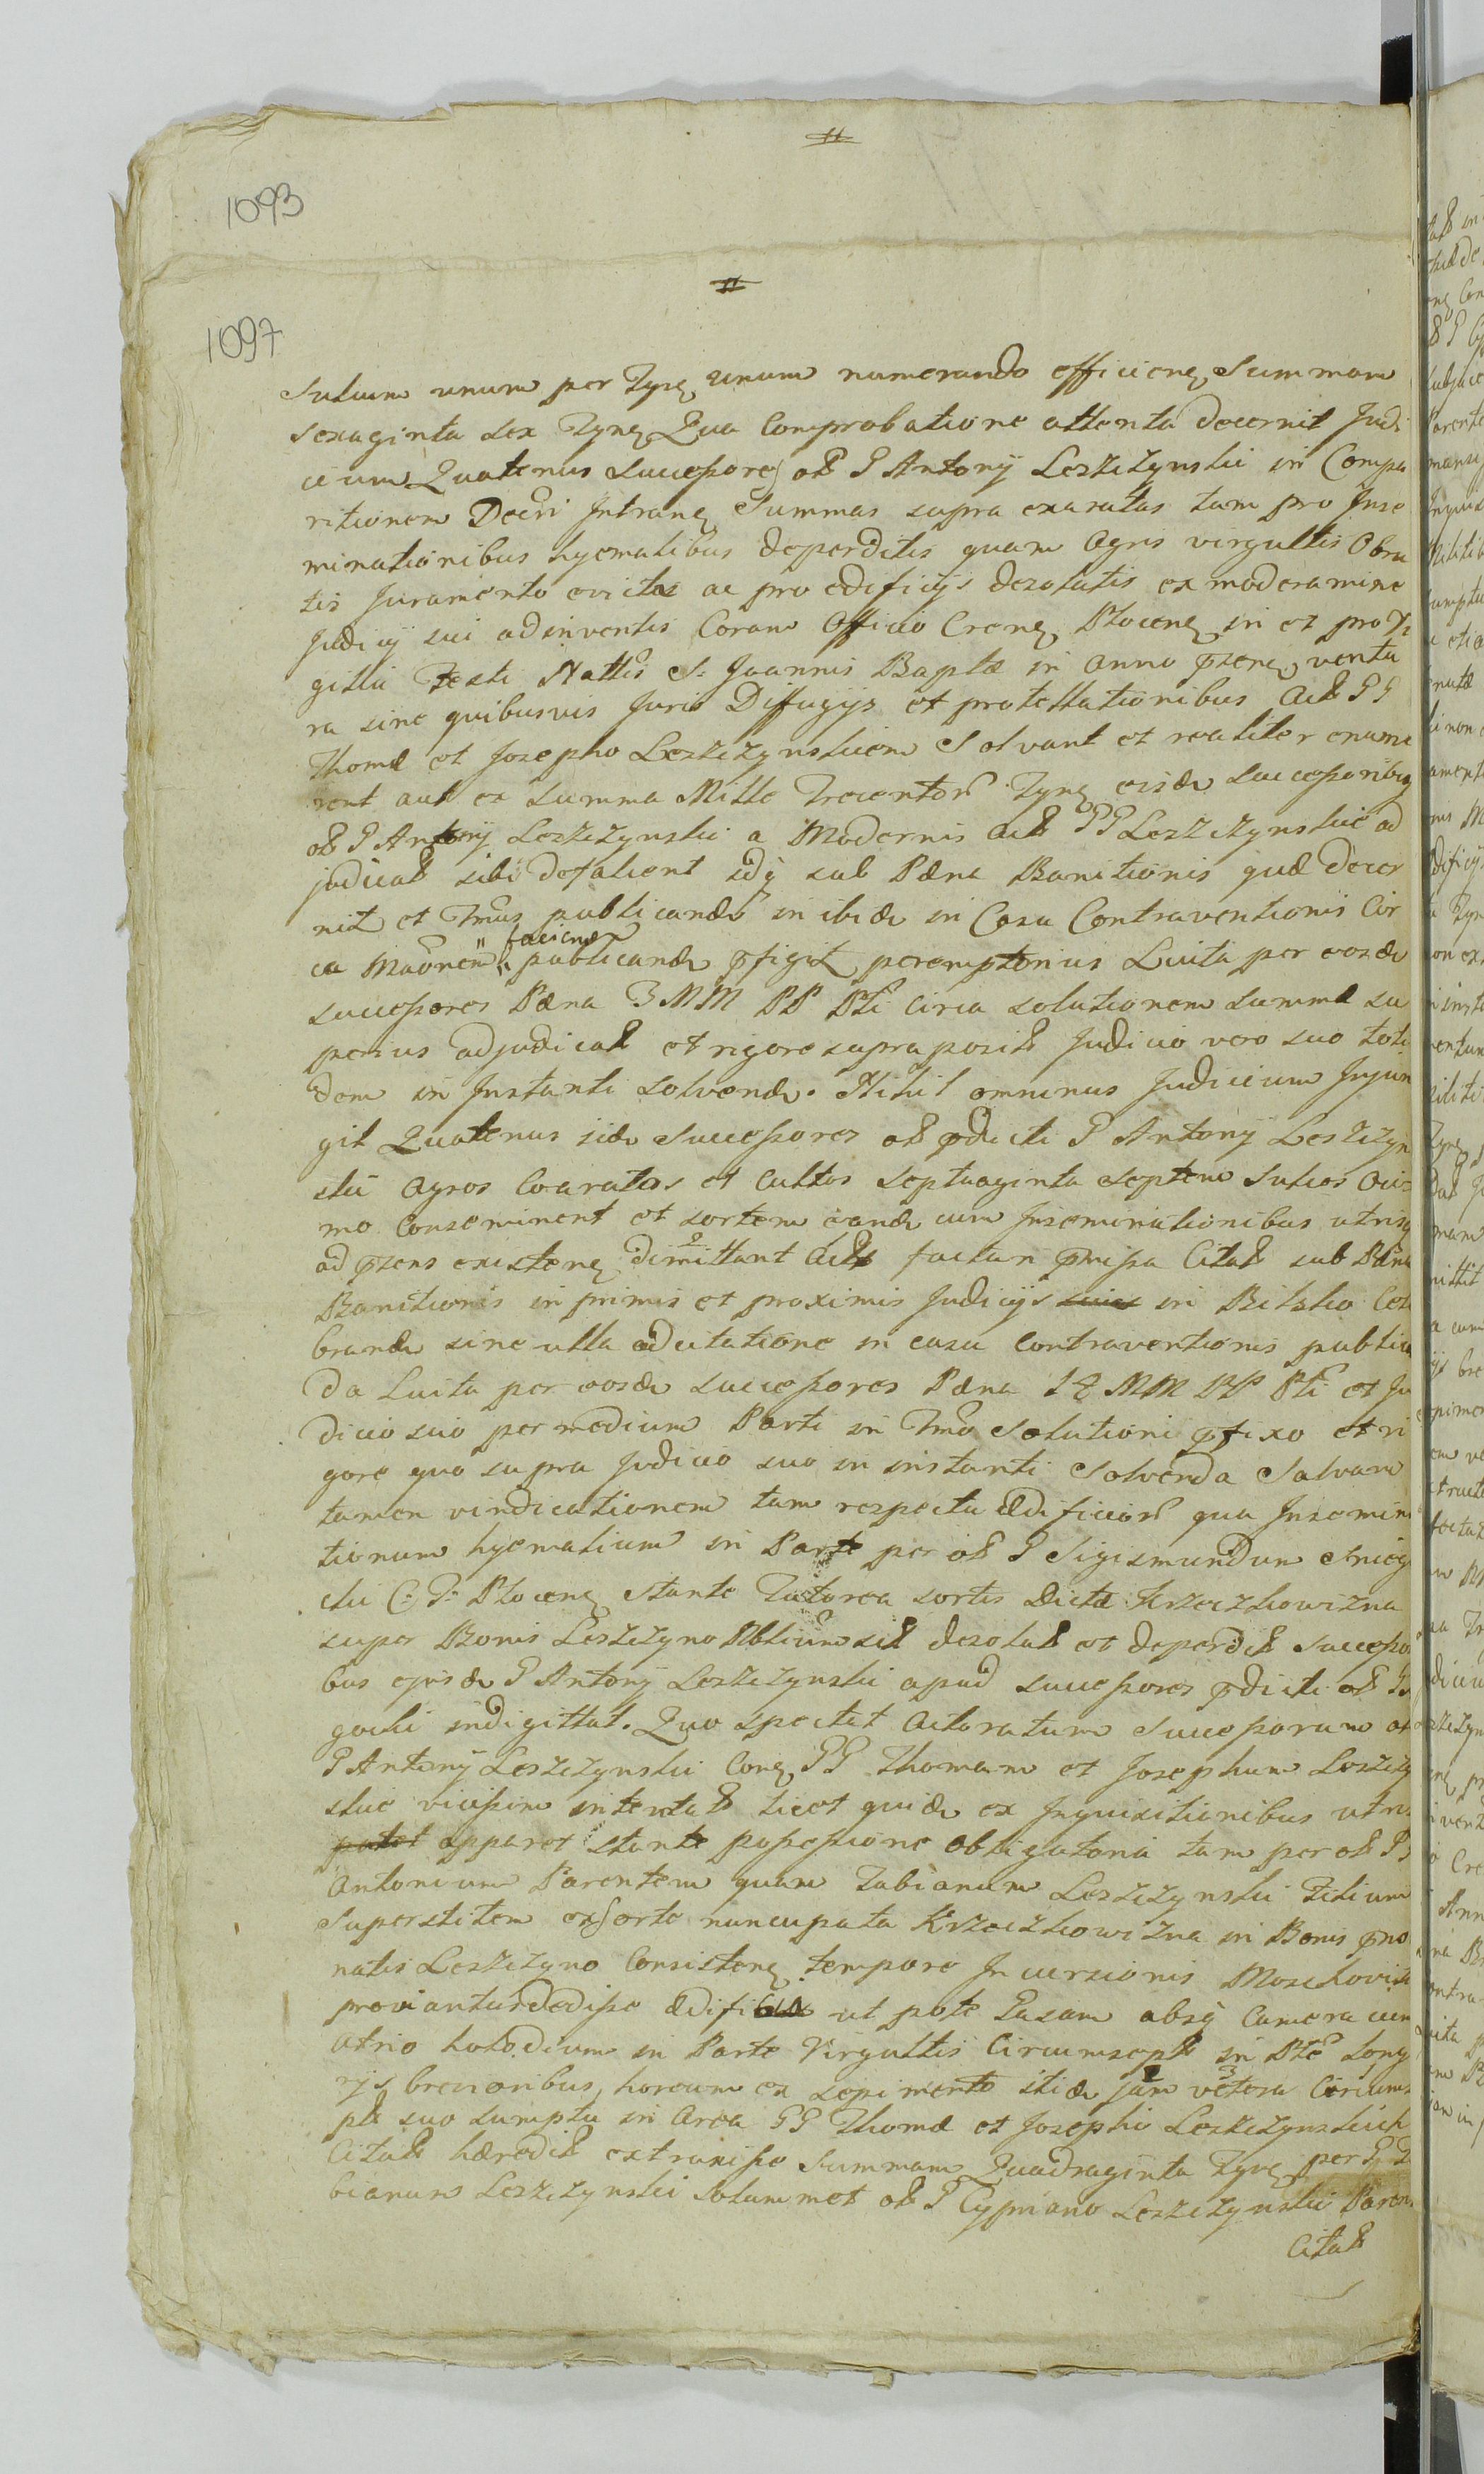 #
1093
#
1097
Sulcum unum per Tynᶒ unum numerando efficienᶒ Summam
sexaginta sex Tynᶒ Qua Comprobatione attenta decernit Judi
cium Quatenus successores ol P Antonÿ Leszczynski in Compa
ritionem Decri Intranᶒ Summas supra exaratas tam pro Inse
minationibus hyematibus deperditis quam Agris virgultis Obru
tis Juramento evictas ac pro edificÿs desolatis ex moderamine
Judicÿ sui adinventis Coram Officio Crenᶒ Plocenᶒ in et pro Vi
gilia Festi Nattis S. Joannis Baptæ in Anno pzenᶒ ventu
ra sine quibusvis Juris Diffugÿs et protestationibus Act PP
Thomæ et Josepho Leszczynskiem Solvant et realiter enume
rent aut ex summa Mille Trecentor Tynᶒ eisdm successoribus
ol P Antonÿ Leszczynski a Modernis Act PP Leszczynskie ad
judicat sibi defalcent idq sub Pæna Banitionis quæ decer
nit et Tmus publicandi in ibidm in Casu Contraventionis Cir
ca Maonem faciend publicandm pfigit peremptorius Luita per eosdm
successores Pæna 3 MM PP Pti circa solutionem summæ su
perius adjudicat et rigore supraposit Judicio vero suo toti
dem in Instanti solvendm. Nihil ominus Judicium Injun
git Quatenus iidm Successores ol pdicti P Antonÿ Leszczyn
skii Agros Coaratos et Cultos septuaginta septem Sulcos
mo Conseminent et sortem eandm cum Inseminationibus utrisq
ad pzens existenᶒ dimittant Act factan pmissa Citat sub Pæna
Banitionis in primis et proximis Judicÿs in Bilsko Cele
brandm sine ulla adcitatione in casu Contraventionis publica
da Luita per eosdm successores Pæna 14 MM PP Pti et Ju
dicio suo per medium Parti in Tmo Solutioni pfixo et ri
gore quo supra Judicio suo in instanti Solvenda Salvam
tamen vindicationem tam respectu ædificior qua Insemina
tionum hyematium in Parte per ol P Sigismundum
C. T. Plocenᶒ stante Tutorea sortis dictæ Krzeczkowizna
super Bonis Leszczyno sit desolat et deperdit Successo
bus ejusdm P Antonÿ Leszczynski apud successores pdicti ol
gocki indigittat. Quo spectat Actoratum Successorum ol
P Antonÿ Leszczynski Conᶒ PP Thomam et Josephum Leszczy
skie vicissim intentat licet quidm ex Inquisitionibus utris
patet apparet stante possessione obligatoria tam per ol P
Antonium Parentem quam Fabianum Leszczynski Filium
Superstitem ex sorte nuncupata Krzeczkowizna in Bonis pno
natis Leszczyno Consistenᶒ tempore Incursionis Moschoviti
ædificia ut pote Casam absq Camera cum
atrio in Parte Virgultis Circumsept in Pte Long
rÿs brevioribus, horeum ex sepimento itidm jam vetera Circums
pt suo sumptu in Area PP Thomæ et Josephi Leszczynskich
Citat hæredit extruxisse Summam Quadraginta Tynᶒ per P Fa
bianum Leszczynski Solummet ol P Cypriano Leszczynski Paren
Citat